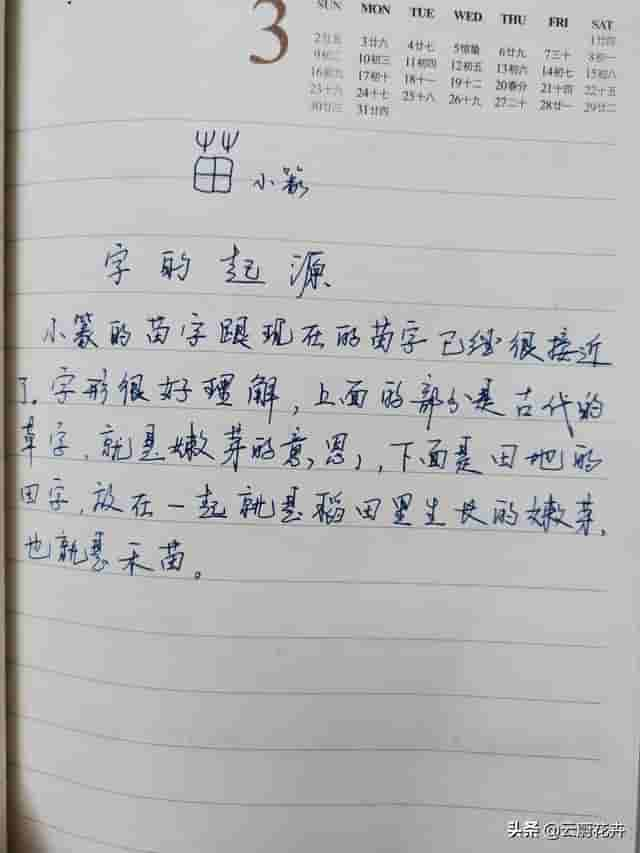 3
SUN MON TUE WED THU FRI SAT
1廿四
2廿五 3廿六 4廿七 5惊蛰 6廿九 7三十 8初一
9初二 10初三 11初四 12初五 13初六 14初七 15初八
16初九 17初十 18十一 19十二 20春分 21十四 22十五
23十六 24十七 25十八 26十九 27二十 28廿一 29廿二
30廿三 31廿四
小篆
字的起源
小篆的苗字跟现在的苗字已经很接近
了。字形很好理解,上面的部分是古代的
草字,就是嫩芽的意思,下面是田地的
田字,放在一起就是稻田里生长的嫩芽,
也就是禾苗。
头条 @云厨花卉